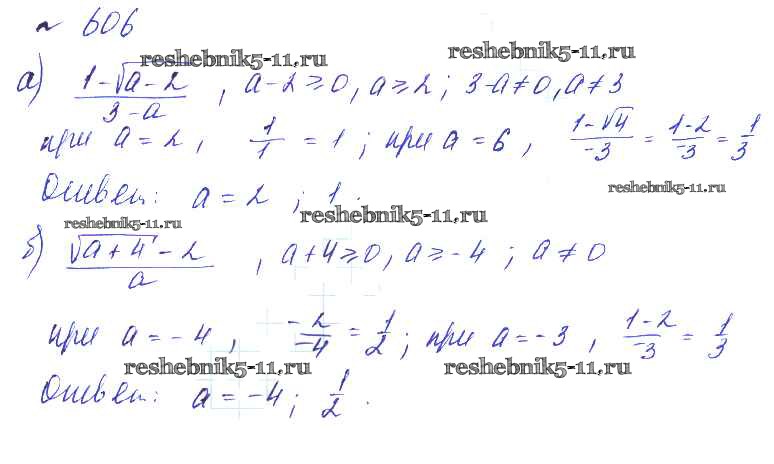 ~ 606
reshebnik5-11.ru reshebnik5-11.ru
а) (1-√(a-2))/(3-a) , a-2≥0, a≥2; 3-a≠0, a≠3
при a=2, 1/1 = 1; при a=6, (1-√4)/(-3) = (1-2)/(-3) = 1/3
Ответ: a=2; 1.
reshebnik5-11.ru
reshebnik5-11.ru reshebnik5-11.ru
б) (√(a+4)-2)/a , a+4≥0, a≥-4; a≠0
при a=-4, (-2)/(-4) = 1/2; при a=-3, (1-2)/(-3) = 1/3
reshebnik5-11.ru reshebnik5-11.ru
Ответ: a=-4; 1/2.